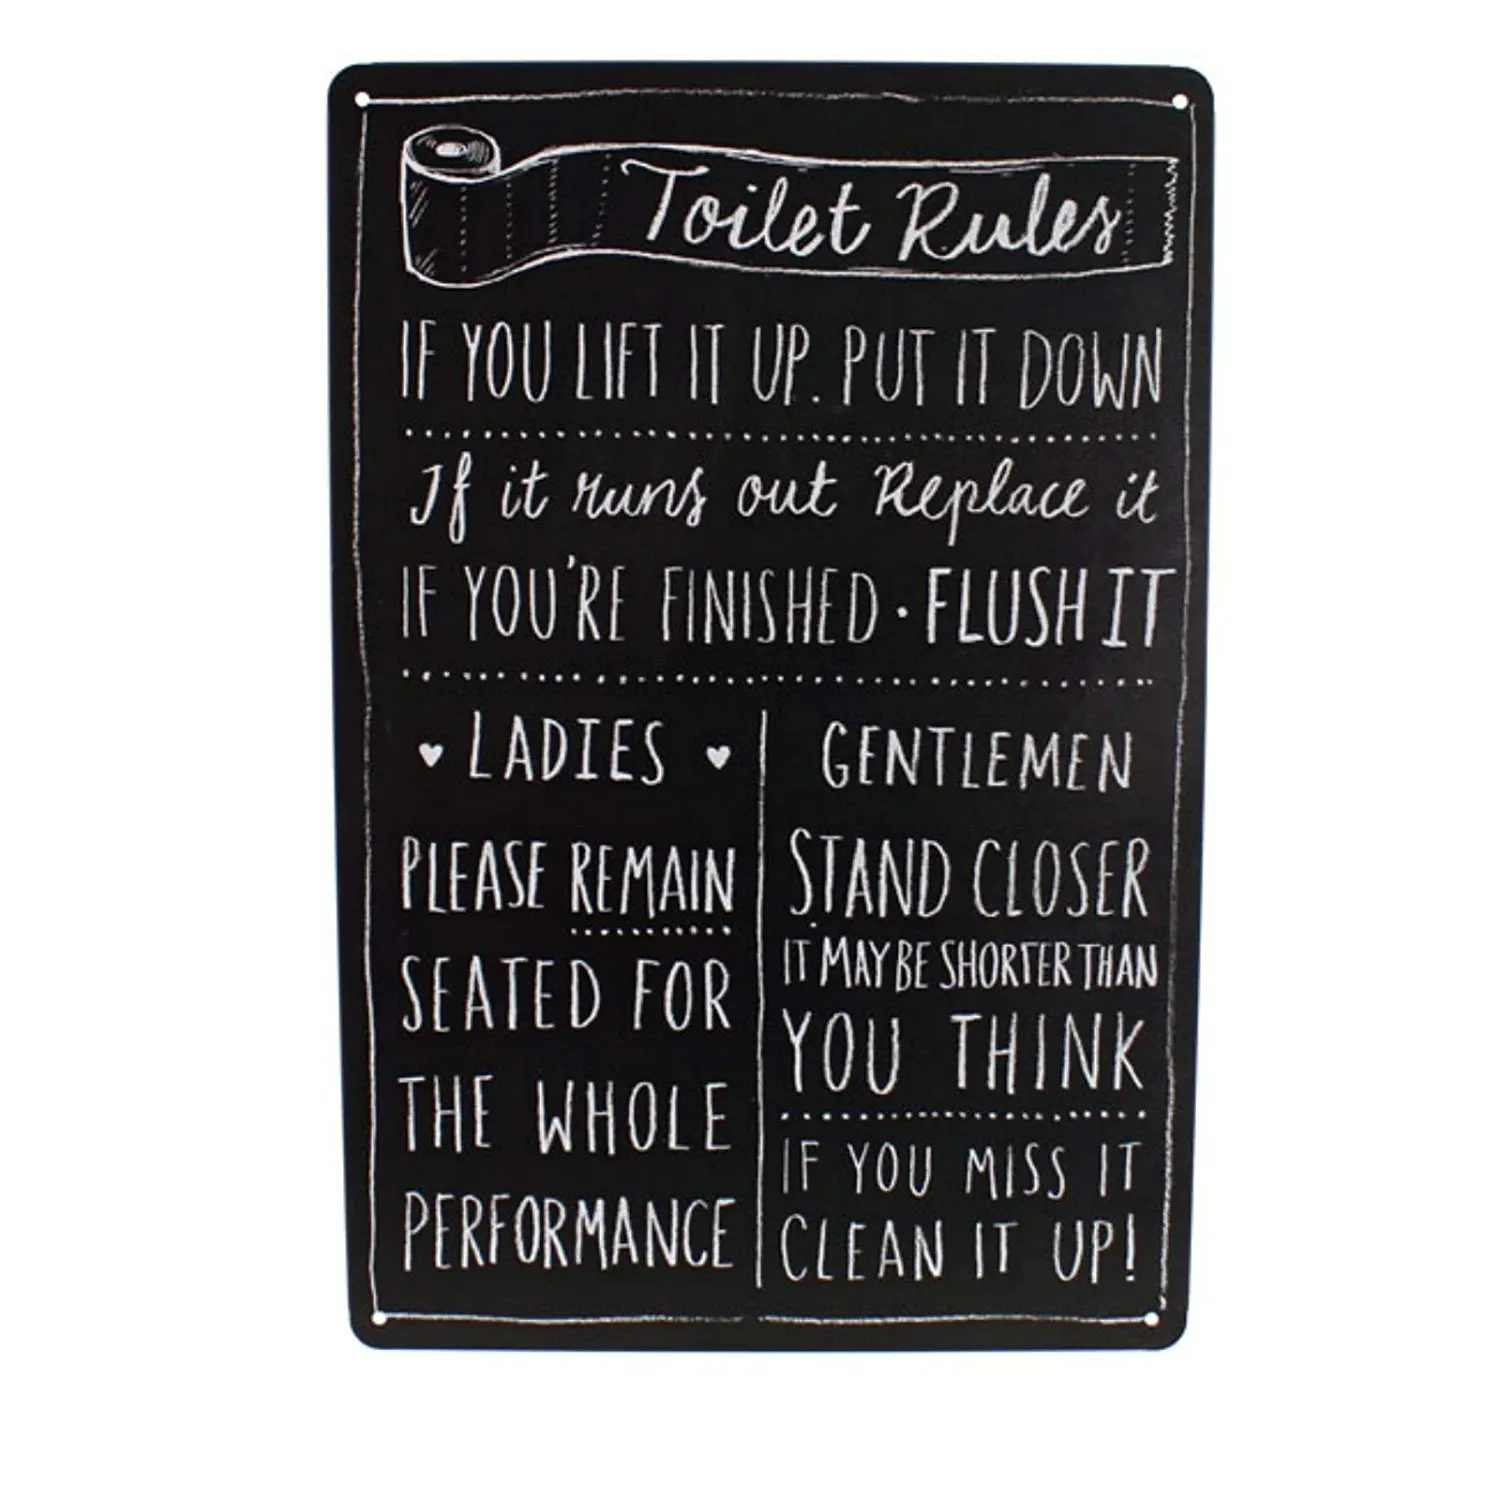 Toilet Rules
IF YOU LIFT IT UP. PUT IT DOWN
If it runs out Replace it
IF YOU'RE FINISHED · FLUSH IT
♥ LADIES ♥
PLEASE REMAIN
SEATED FOR
THE WHOLE
PERFORMANCE
GENTLEMEN
STAND CLOSER
IT MAY BE SHORTER THAN
YOU THINK
IF YOU MISS IT
CLEAN IT UP!